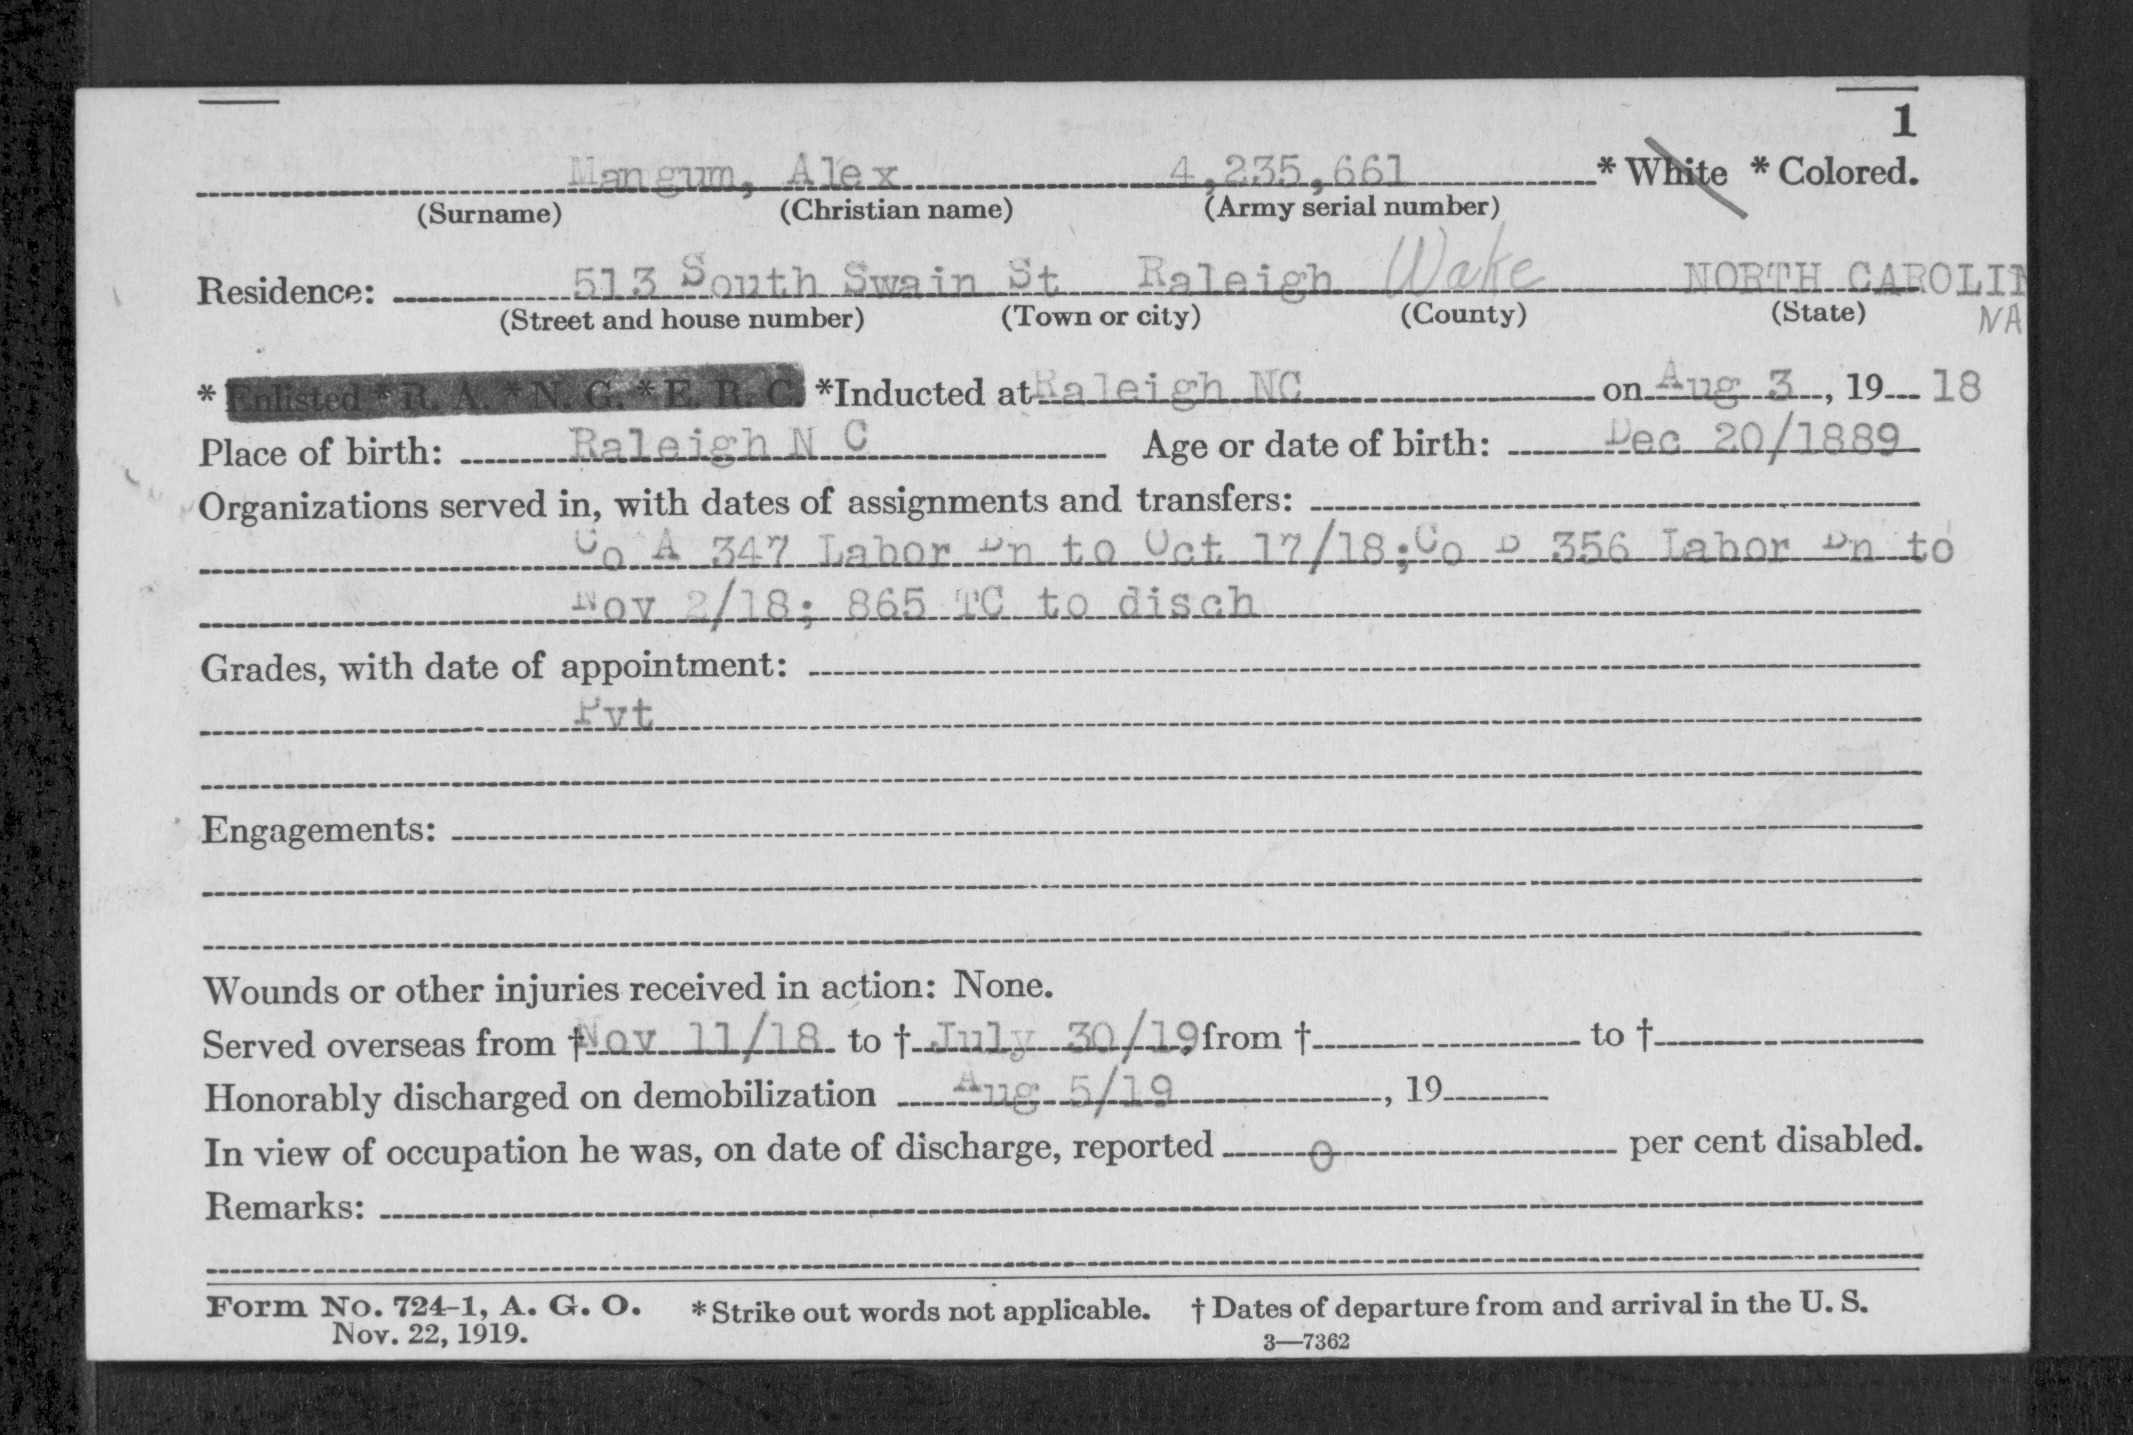 1
Mangum, Alex 4,235,661 * White * Colored.
(Surname) (Christian name) (Army serial number)
Residence: 513 South Swain St Raleigh Wake NORTH CAROLIN
(Street and house number) (Town or city) (County) (State) NA
* Enlisted * R. A. * N. G. * E. R. C. *Inducted at Raleigh NC on Aug 3, 19 18
Place of birth: Raleigh N C Age or date of birth: Dec 20/1889
Organizations served in, with dates of assignments and transfers:
Co A 347 Labor Bn to Oct 17/18; Co B 356 Labor Bn to
Nov 2/18; 865 TC to disch
Grades, with date of appointment:
Pvt
Engagements:
Wounds or other injuries received in action: None.
Served overseas from † Nov 11/18 to † July 30/19, from † to †
Honorably discharged on demobilization Aug 5/19, 19
In view of occupation he was, on date of discharge, reported 0 per cent disabled.
Remarks:
Form No. 724-1, A. G. O. *Strike out words not applicable. † Dates of departure from and arrival in the U. S.
Nov. 22, 1919. 3—7362